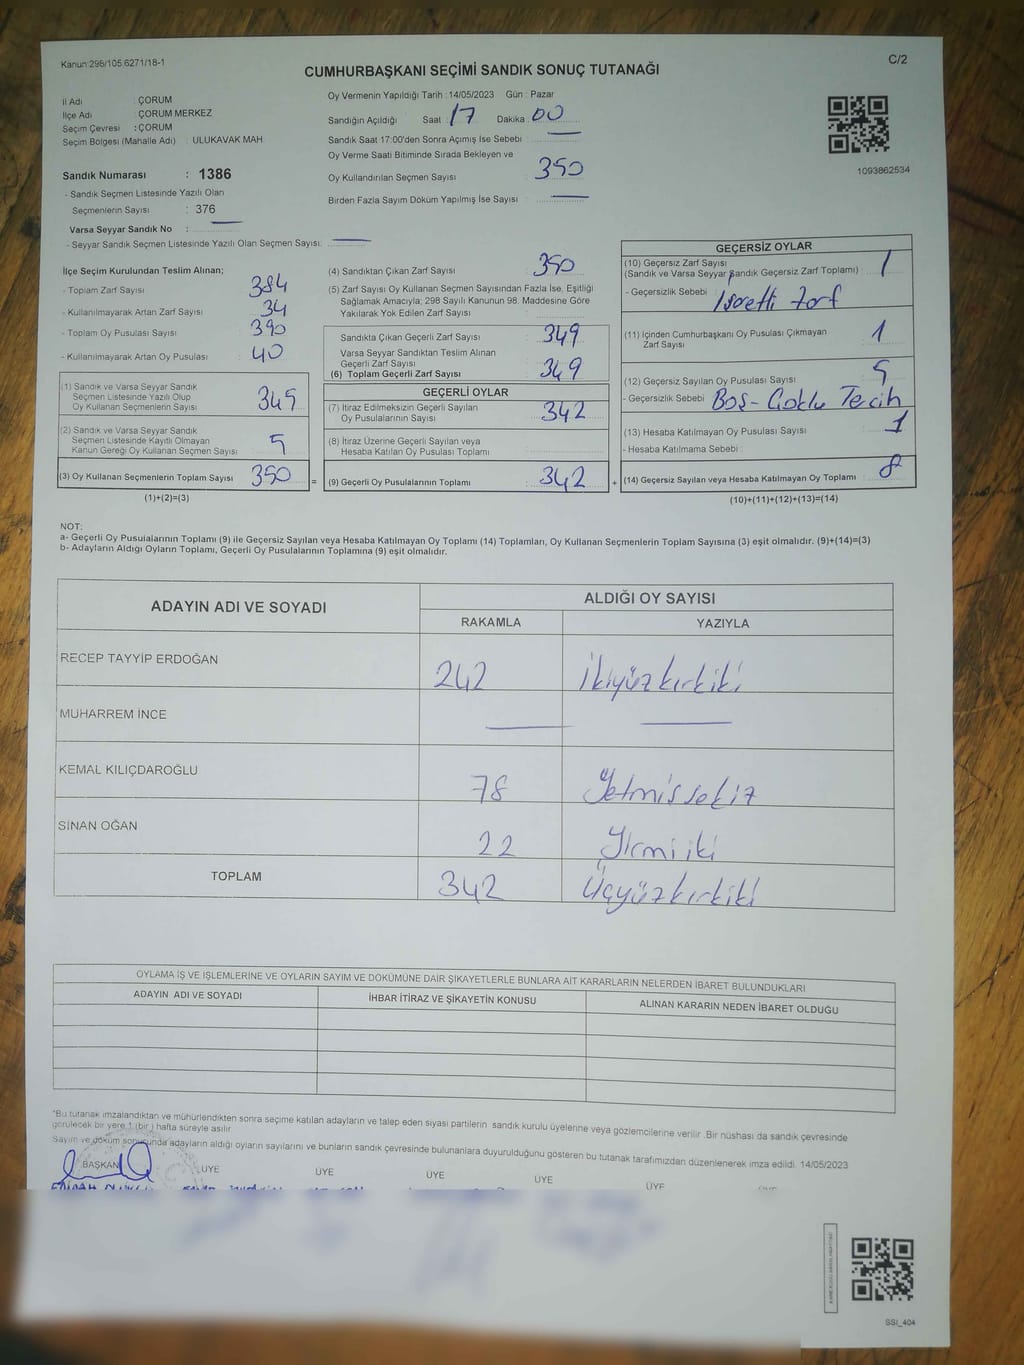 Kanun:298/105.6271/18-1
C/2
CUMHURBAŞKANI SEÇİMİ SANDIK SONUÇ TUTANAĞI
İl Adı : ÇORUM
İlçe Adı : ÇORUM MERKEZ
Seçim Çevresi : ÇORUM
Seçim Bölgesi (Mahalle Adı) : ULUKAVAK MAH
Sandık Numarası : 1386
- Sandık Seçmen Listesinde Yazılı Olan
Seçmenlerin Sayısı : 376
Varsa Seyyar Sandık No :
- Seyyar Sandık Seçmen Listesinde Yazılı Olan Seçmen Sayısı:
Oy Vermenin Yapıldığı Tarih : 14/05/2023 Gün : Pazar
Sandığın Açıldığı Saat : 17 Dakika : 00
Sandık Saat 17:00'den Sonra Açımış İse Sebebi :
Oy Verme Saati Bitiminde Sırada Bekleyen ve
Oy Kullandırılan Seçmen Sayısı : 350
Birden Fazla Sayım Döküm Yapılmış İse Sayısı :
1093862534
İlçe Seçim Kurulundan Teslim Alınan;
- Toplam Zarf Sayısı : 384
- Kullanılmayarak Artan Zarf Sayısı : 34
- Toplam Oy Pusulası Sayısı : 390
- Kullanılmayarak Artan Oy Pusulası : 40
(1) Sandık ve Varsa Seyyar Sandık
Seçmen Listesinde Yazılı Olup
Oy Kullanan Seçmenlerin Sayısı : 345
(2) Sandık ve Varsa Seyyar Sandık
Seçmen Listesinde Kayıtlı Olmayan
Kanun Gereği Oy Kullanan Seçmen Sayısı : 5
(3) Oy Kullanan Seçmenlerin Toplam Sayısı : 350 =
(1)+(2)=(3)
(4) Sandıktan Çıkan Zarf Sayısı : 350
(5) Zarf Sayısı Oy Kullanan Seçmen Sayısından Fazla İse, Eşitliği
Sağlamak Amacıyla; 298 Sayılı Kanunun 98. Maddesine Göre
Yakılarak Yok Edilen Zarf Sayısı :
Sandıkta Çıkan Geçerli Zarf Sayısı : 349
Varsa Seyyar Sandıktan Teslim Alınan
Geçerli Zarf Sayısı :
(6) Toplam Geçerli Zarf Sayısı : 349
GEÇERLİ OYLAR
(7) İtiraz Edilmeksizin Geçerli Sayılan
Oy Pusulalarının Sayısı : 342
(8) İtiraz Üzerine Geçerli Sayılan veya
Hesaba Katılan Oy Pusulası Toplamı :
(9) Geçerli Oy Pusulalarının Toplamı : 342 +
GEÇERSİZ OYLAR
(10) Geçersiz Zarf Sayısı
(Sandık ve Varsa Seyyar Sandık Geçersiz Zarf Toplamı) : 1
- Geçersizlik Sebebi : İşaretli Zarf
(11) İçinden Cumhurbaşkanı Oy Pusulası Çıkmayan
Zarf Sayısı : 1
(12) Geçersiz Sayılan Oy Pusulası Sayısı : 5
- Geçersizlik Sebebi : Boş - Çoklu Tercih
(13) Hesaba Katılmayan Oy Pusulası Sayısı : 1
- Hesaba Katılmama Sebebi :
(14) Geçersiz Sayılan veya Hesaba Katılmayan Oy Toplamı : 8
(10)+(11)+(12)+(13)=(14)
NOT:
a- Geçerli Oy Pusulalarının Toplamı (9) ile Geçersiz Sayılan veya Hesaba Katılmayan Oy Toplamı (14) Toplamları, Oy Kullanan Seçmenlerin Toplam Sayısına (3) eşit olmalıdır. (9)+(14)=(3)
b- Adayların Aldığı Oyların Toplamı, Geçerli Oy Pusulalarının Toplamına (9) eşit olmalıdır.
ADAYIN ADI VE SOYADI
ALDIĞI OY SAYISI
RAKAMLA YAZIYLA
RECEP TAYYİP ERDOĞAN 242 İkiyüzkırkiki
MUHARREM İNCE
KEMAL KILIÇDAROĞLU 78 Yetmişsekiz
SİNAN OĞAN 22 Yirmiiki
TOPLAM 342 Üçyüzkırkiki
OYLAMA İŞ VE İŞLEMLERİNE VE OYLARIN SAYIM VE DÖKÜMÜNE DAİR ŞİKAYETLERLE BUNLARA AİT KARARLARIN NELERDEN İBARET BULUNDUKLARI
ADAYIN ADI VE SOYADI İHBAR İTİRAZ VE ŞİKAYETİN KONUSU ALINAN KARARIN NEDEN İBARET OLDUĞU
*Bu tutanak imzalandıktan ve mühürlendikten sonra seçime katılan adayların ve talep eden siyasi partilerin sandık kurulu üyelerine veya gözlemcilerine verilir. Bir nüshası da sandık çevresinde
görülecek bir yere 1 (bir) hafta süreyle asılır.
Sayım ve döküm sonucunda adayların aldığı oyların sayılarını ve bunların sandık çevresinde bulunanlara duyurulduğunu gösteren bu tutanak tarafımızdan düzenlenerek imza edildi. 14/05/2023
BAŞKAN ÜYE ÜYE ÜYE ÜYE ÜYE
SSI_404